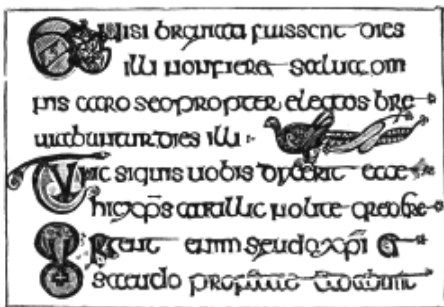 Et nisi breuiati fuissent dies
illi non fieret salua om
nis caro sed propter electos bre
uiabuntur dies illi
Tunc si quis uobis dixerit ecce
hic xps aut illic nolite credere
enim seudoxpi et
seudo dabunt